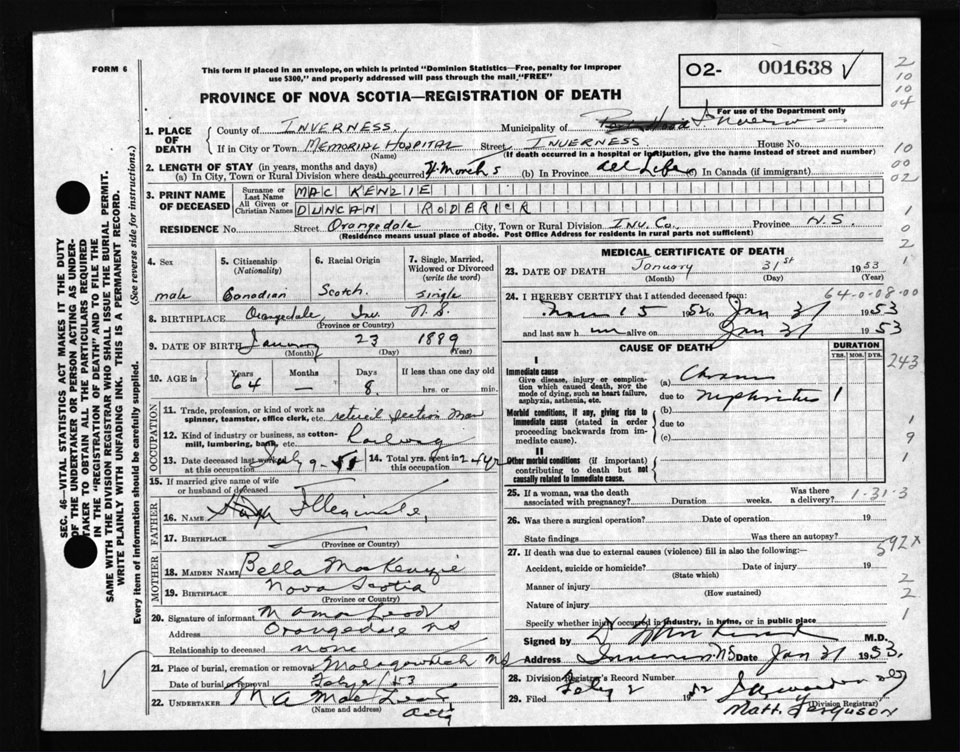 FORM 6
This form if placed in an envelope, on which is printed "Dominion Statistics—Free, penalty for improper
use $300," and properly addressed will pass through the mail "FREE"
O2- 001638 √
For use of the Department only
PROVINCE OF NOVA SCOTIA—REGISTRATION OF DEATH
1. PLACE OF DEATH
County of INVERNESS. Municipality of
If in City or Town MEMORIAL HOSPITAL Street INVERNESS House No.
(Name) (If death occurred in a hospital or institution, give the name instead of street and number)
2. LENGTH OF STAY (in years, months and days)
(a) In City, Town or Rural Division where death occurred Months (b) In Province All Life (c) In Canada (if immigrant)
3. PRINT NAME OF DECEASED
Surname or Last Name MAC KENZIE
All Given or Christian Names DUNCAN RODERICK
RESIDENCE No. Street Orangedale City, Town or Rural Division INV. Co. Province N.S.
(Residence means usual place of abode. Post Office Address for residents in rural parts not sufficient)
4. Sex
male
5. Citizenship
(Nationality)
Canadian
6. Racial Origin
Scotch.
7. Single, Married,
Widowed or Divorced
(write the word)
Single
8. BIRTHPLACE Orangedale, Inv. N.S.
(Province or Country)
9. DATE OF BIRTH January 23 1889
(Month) (Day) (Year)
10. AGE in Years 64 Months — Days 8 If less than one day old
hrs. or min.
OCCUPATION
11. Trade, profession, or kind of work as
spinner, teamster, office clerk, etc. Section Man
12. Kind of industry or business, as cotton-
mill, lumbering, bank, etc. Railway
13. Date deceased last worked
at this occupation
14. Total yrs. spent in
this occupation
15. If married give name of wife
or husband of deceased
FATHER
16. NAME Illegimate,
17. BIRTHPLACE
(Province or Country)
MOTHER
18. MAIDEN NAME Bella MacKenzie
19. BIRTHPLACE Nova Scotia
(Province or Country)
20. Signature of informant
Address Orangedale NS
Relationship to deceased none
21. Place of burial, cremation or removal Malagawatch NS
Date of burial or removal
22. UNDERTAKER M A Mac Leod
(Name and address)
MEDICAL CERTIFICATE OF DEATH
23. DATE OF DEATH January 31st 1953
(Month) (Day) (Year)
24. I HEREBY CERTIFY that I attended deceased from: 64-0-08-00
15 1952 Jan 31 1953
and last saw him alive on Jan 31 1953
CAUSE OF DEATH
DURATION
YRS. MOS. DYS.
I
Immediate cause
Give disease, injury or complica-
tion which caused death, NOT the
mode of dying, such as heart failure,
asphyxia, asthenia, etc.
(a) Chronic
due to Nephritis 1
Morbid conditions, if any, giving rise to
immediate cause (stated in order
proceeding backwards from im-
mediate cause).
(b)
due to
(c)
II
Other morbid conditions (if important)
contributing to death but not
causally related to immediate cause.
25. If a woman, was the death
associated with pregnancy? Duration weeks. Was there
a delivery? 1-31-3
26. Was there a surgical operation? Date of operation 19
State findings Was there an autopsy?
27. If death was due to external causes (violence) fill in also the following:—
Accident, suicide or homicide? Date of injury 19
(State which)
Manner of injury
(How sustained)
Nature of injury
Specify whether injury occurred in industry, in home, or in public place
Signed by M.D.
Address Inverness NS Date Jan 31 1953.
28. Division Registrar's Record Number
29. Filed Feby 2
(Division Registrar)
Matt. Ferguson
2
10
10
04
10
00
02
1
0
2
1
243
1
9
1
592X
2
2
1
SEC. 46—VITAL STATISTICS ACT MAKES IT THE DUTY
OF THE UNDERTAKER OR PERSON ACTING AS UNDER-
TAKER TO OBTAIN ALL THE PARTICULARS REQUIRED
IN THE "REGISTRATION OF DEATH" AND TO FILE THE
SAME WITH THE DIVISION REGISTRAR WHO SHALL ISSUE THE BURIAL PERMIT.
WRITE PLAINLY WITH UNFADING INK. THIS IS A PERMANENT RECORD.
Every item of information should be carefully supplied. (See reverse side for instructions.)